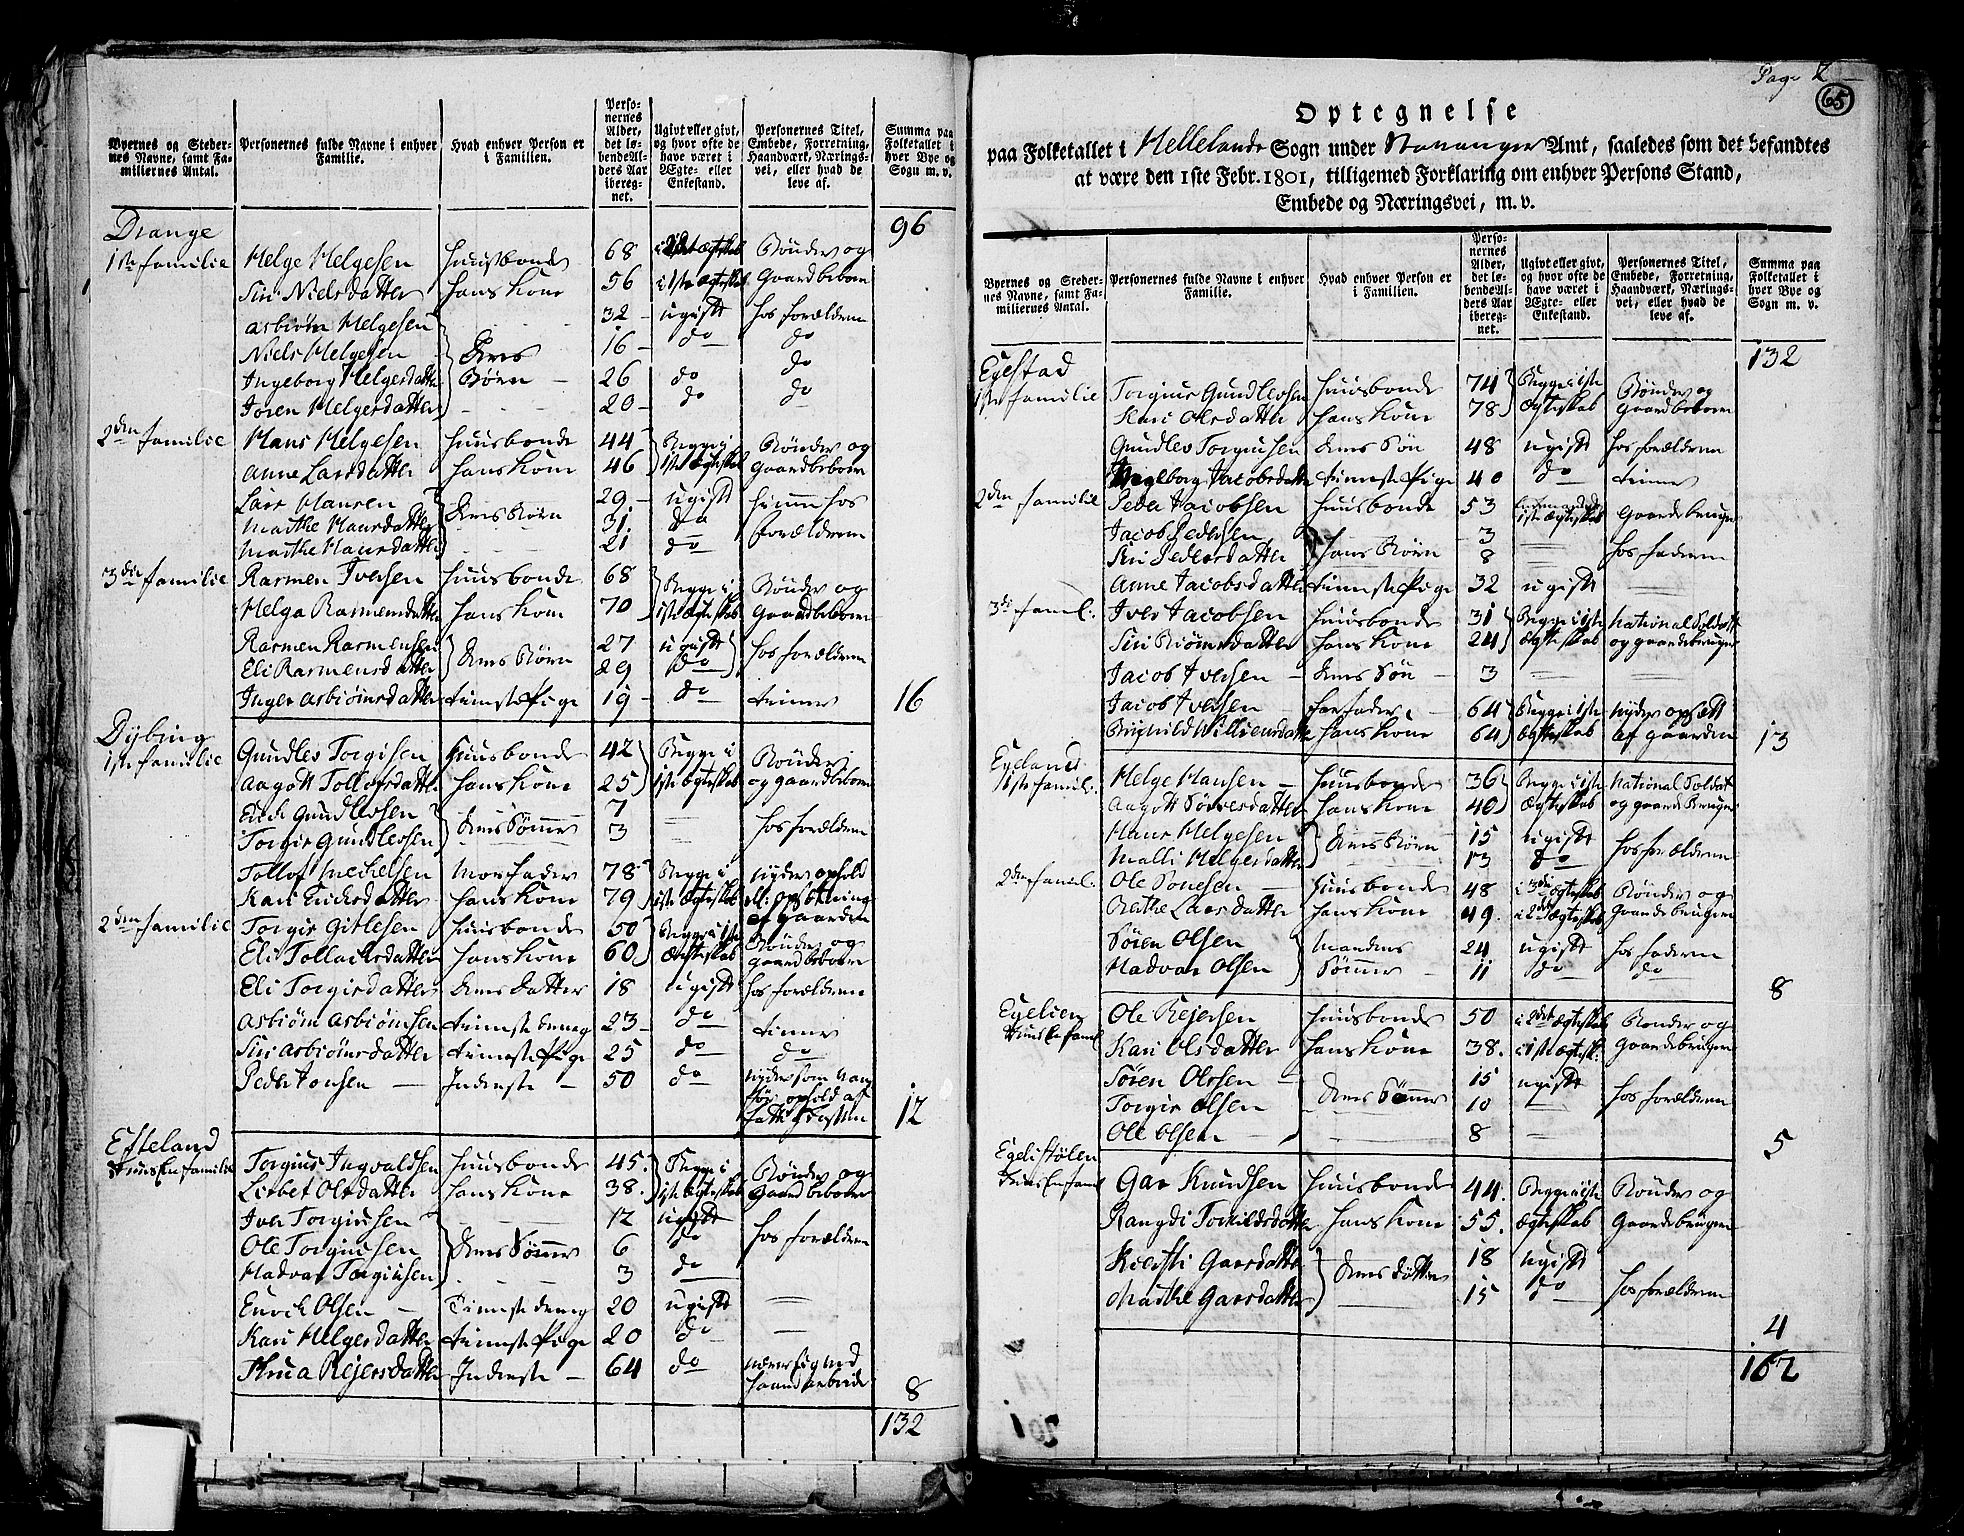 Byernes og Steder-
nes Navne, samt Fa-
miliernes Antal.
Personernes fulde Navne i enhver
Familie.
Hvad enhver Person er
i Familien.
Perso-
nernes
Alder,
det lø-
bende Al-
ders Aar
ibereg-
net.
Ugivt eller givt,
og hvor ofte de
have været i
Ægte- eller
Enkestand.
Personernes Titel,
Embede, Forretning,
Haandværk, Nærings-
vei, eller hvad de
leve af.
Summa paa
Folketallet i
hver Bye og
Sogn m. v.
Drange 96
1ste familie Helge Helgesen Huusbonde 68 Bønder og
Siri Nielsdatter Hans Kone 56 i 1ste ægteskab Gaardbeboere
Asbiørn Helgesen 32 ugivt hos forældrene
Niels Helgesen Deres 16 do do
Ingeborg Helgesdatter Børn 26 do do
Joren Helgesdatter 20 do do
2den familie Hans Helgesen Huusbonde 44 Begge i Bønder og
Anne Larsdatter Hans Kone 46 1ste ægteskab Gaardbeboere
Lars Hansen 29 ugivt hiemme hos
Marthe Hansdatter Deres Børn 31 do forældrene
Marthe Hansdatter 21 do
3die familie Rasmen Iversen Huusbonde 68 Begge i Bønder og
Helga Rasmensdatter Hans Kone 70 1ste ægteskab Gaardbeboere
Rasmen Rasmensen 27 ugivt hos forældrene
Eli Rasmensdatter Deres Børn 29 do
Inger Asbiørnsdatter tienestepige 19 do tiener 16
Dybing
1ste familie Gundlev Torgisen Huusbonde 42 Begge i Bønder
Aagott Tollofsdatter Hans Kone 25 1ste ægteskab og gaardbeboere
Erich Gundlevsen 7
Torgir Gundlevsen Deres Sønner 3 hos forældrene
Tollof Mechelsen Morfader 78 Begge i nyder ophold
Kari Erichsdatter Hans Kone 79 1ste ægteskab
af gaarden
2den familie Torgir Gitlesen Huusbonde 50 Begge i 1ste Bønder og
Eli Tollachsdatter Hans Kone 60 ægteskab gaardbeboere
Eli Torgirsdatter Deres datter 18 ugivt hos forældrene
Asbiørn Asbiørnsen tieneste dreng 23 do tiener
Siri Asbiørnsdatter tienestepige 25 do do
Peder Jonsen Inderste 50 do
ophold af
12
Efteland
Torgius Ingvaldsen Huusbonde 45 Begge i Bønder og
Lisbet Olsdatter Hans Kone 38 1ste ægteskab Gaardbeboere
Iver Torgiusen 12 ugivt
Ole Torgiusen Deres Sønner 6 do hos forældrene
Hadvar Torgiusen 3 do
Enoch Olsen Tieneste dreng 20 ugivt
Kari Helgesdatter tienestepige 20 do
Reiersdatter Inderste 64 do nærer sig ved
haandarbeide 8
132
Page 2
65
Optegnelse
paa Folketallet i Hellelands Sogn under Stavanger Amt, saaledes som det befandtes
at være den 1ste Febr. 1801, tilligemed Forklaring om enhver Persons Stand,
Embede og Næringsvei, m. v.
Byernes og Steder-
nes Navne, samt Fa-
miliernes Antal.
Personernes fulde Navne i enhver
Familie.
Hvad enhver Person er
i Familien.
Perso-
nernes
Alder,
det lø-
bende Al-
ders Aar
ibereg-
net.
Ugivt eller givt,
og hvor ofte de
have været i
Ægte- eller
Enkestand.
Personernes Titel,
Embede, Forretning,
Haandværk, Nærings-
vei, eller hvad de
leve af.
Summa paa
Folketallet i
hver Bye og
Sogn m. v.
Egestad 132
1ste familie Torgius Gundlevsen Huusbonde 74 Begge i 1ste Bønder og
Kari Olsdatter Hans Kone 78 ægteskab Gaardbeboere
Gundlev Torgiusen Deres Søn 48 ugivt hos forældrene
Ingeborg Jacobsdatter tienestepige 40 do tiener
2den familie Peder Jacobsen Huusbonde 53 1ste ægteskab Gaardebruger
Jacob Pedersen 3
Siri Pedersdatter Hans Børn 8 hos faderen
Anne Jacobsdatter tienestepige 32 ugivt
3die famil: Iver Jacobsen Huusbonde 31 Begge i 1ste National Soldat
Siri Biørnsdatter Hans Kone 24 ægteskab og gaardebruger
Jacob Iversen Deres Søn 3
Jacob Iversen Farfader 64 Begge i 1ste nyder opsætt
Willumsdatter Hans Kone 64 ægteskab af gaarden 13
Egeland
1ste famil: Helge Hansen Huusbonde 36 Begge i 1ste National Soldat
Aagott Sørensdatter Hans Kone 40 ægteskab og gaardebruger
Hans Helgesen 15 ugivt
Malli Helgesdatter Deres Børn 13 do hos forældrene
2den famil: Ole Ponesen Huusbonde 48 i 3die ægteskab Bønder og
Larsdatter Hans Kone 49 i 2det ægteskab Gaardebrugere
Søren Olsen Mandens 24 ugivt hos faderen
Hadvar Olsen Sønner 11 do do
8
Egelien
Ole Reiersen Huusbonde 50 i 2det ægteskab Bønder og
Kari Olsdatter Hans Kone 38 i 1ste ægtesk: Gaardebrugere
Søren Olssen 15 ugivt
Torgir Olsen Deres Sønner 10 hos forældrene
Ole Olsen 8
5
Egelistølen
Gar Knudsen Huusbonde 44 Begge i 1ste Bønder og
Rangdi Torkildsdatter Hans Kone 55 ægteskab Gaardebrugere
Kiersti Garsdatter 18 ugivt
Marthe Garsdatter Deres døttre 15 do hos forældrene
4
162